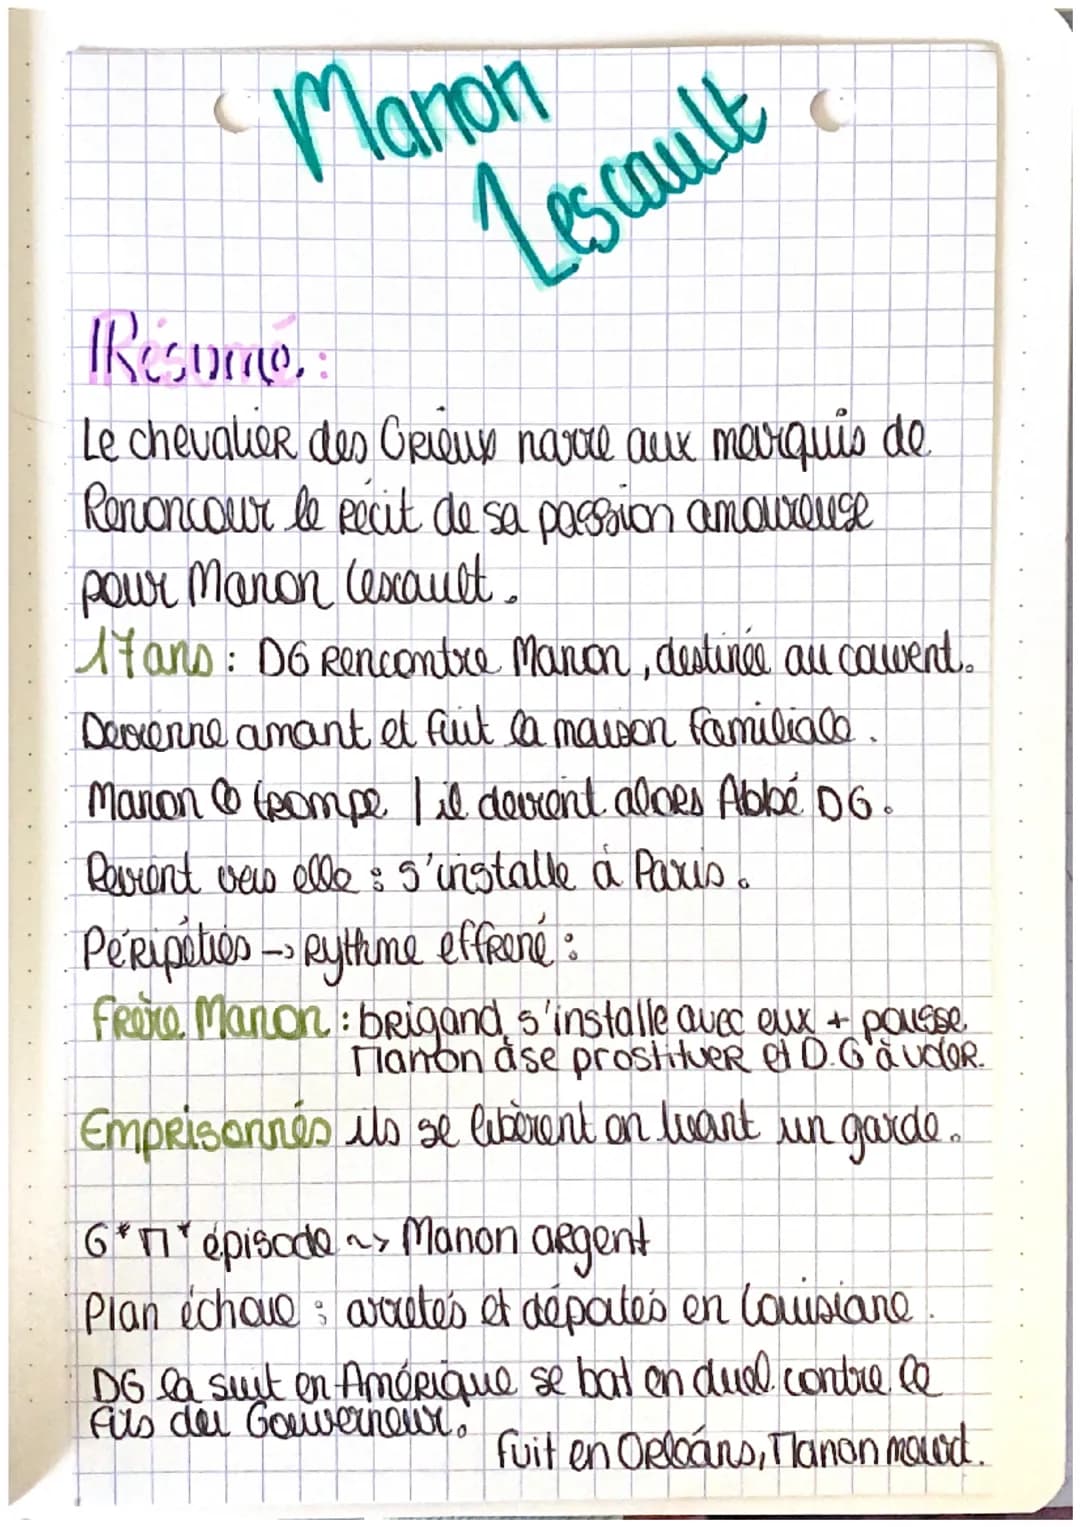 Manon
Lescault
Résumé :
Le chevalier des Grieux narre aux marquis de
Renoncour le récit de sa passion amoureuse
pour Manon Lescault.
17 ans : DG Rencontre Manon, destinée au couvent.
Devienne amant et fuit la maison familiale.
Manon le trompe | il devient alors Abbé DG.
Revient vers elle : s'installe à Paris.
Péripéties -> Rythme effrené :
Frère Manon : brigand s'installe avec eux + pousse
Manon à se prostituer et D.G à voler.
Emprisonnés ils se libèrent en tuant un garde.
G*M* épisode ~> Manon argent
Plan échoue : arretés et déportés en Louisiane.
DG la suit en Amérique se bat en duel contre le
fils du Gouverneur.
fuit en Orléans, Manon meurt.